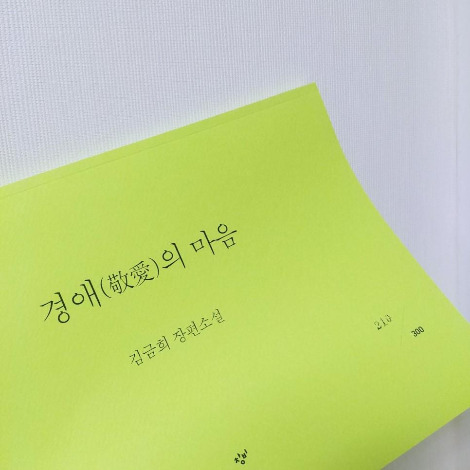 경애(敬愛)의 마음
김금희 장편소설
210
300
창비